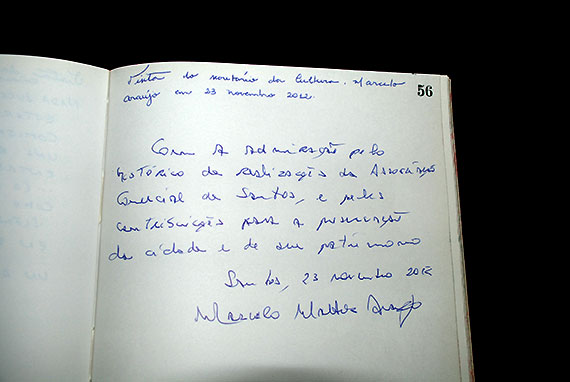 Visita do secretário da Cultura. Marcelo
Araujo em 23 novembro 2012.
56
Com a admiração pelo
histórico de realização da Associação
Comercial de Santos, e pelas
contribuições para a preservação
da cidade e de seu patrimonio
Santos, 23 novembro 2012
Marcelo Mattos Araujo